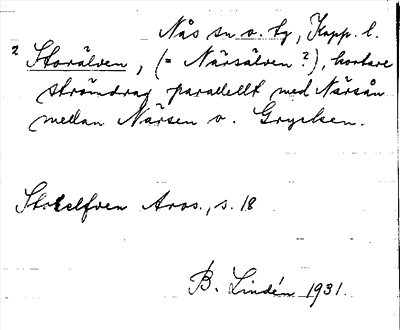 Nås sn o. tg, Kopp. l.
? Storälven, (= Närsälven?), kortare
strömdrag parallellt med Närsån
mellan Närsen o. Grycken.
Storelfven Aros., s. 18
B. Lindén 1931.